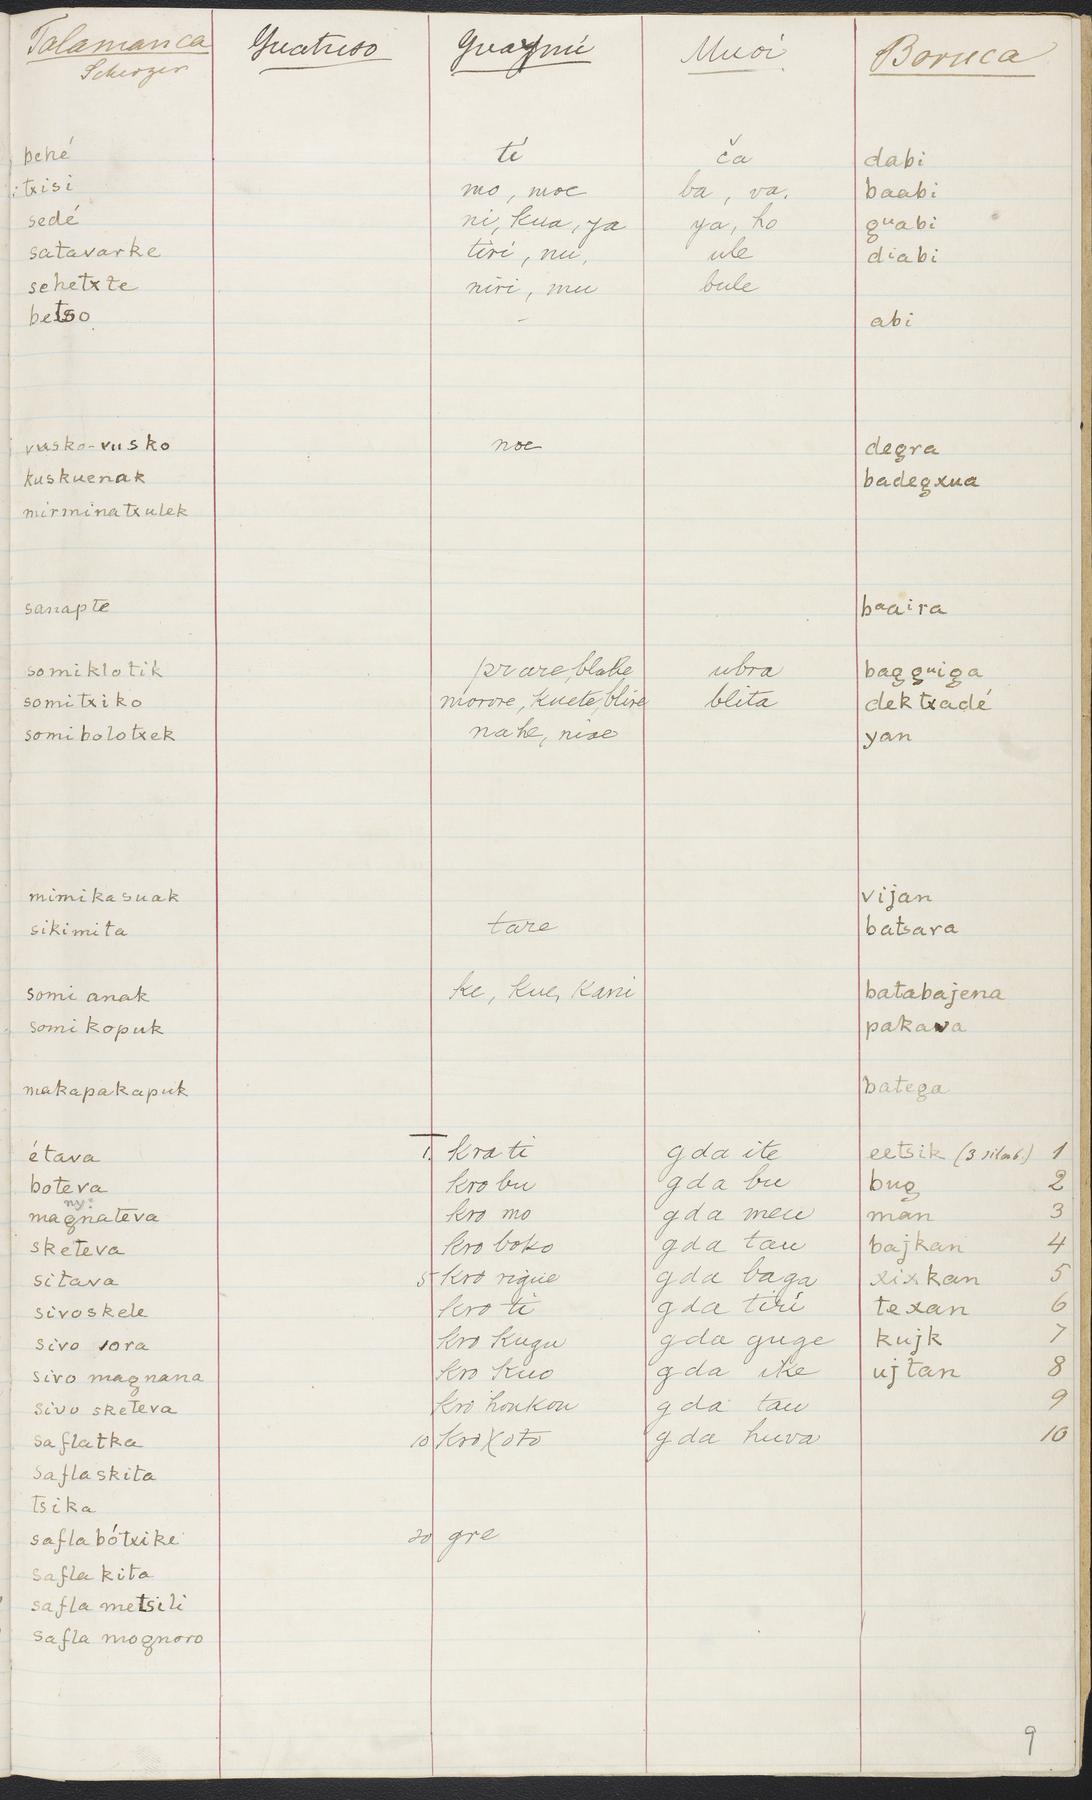 Talamanca Guatuso Guaymí Muoi Boruca
Scherzer
behé tí ča dabi
txisi mo, moe ba, va. baabi
sedé ni, kua, ya ya, ho guabi
satavarke tiri, nu, ule diabi
sehetxte niri, mu bule
betso abi
vusko-vusko noe degra
kuskuenak badegxua
mirminatxulek
sanapte baaira
somiklotik prare, blabe ubra bagguiga
somitxiko morore, kuete, blire blita dektxadé
somibolotxek nahe, nire yan
mimikasuak vijan
sikimita tare batsara
somi anak ke, kue, kani batabajena
somi kopuk pakawa
makapakapuk batega
étava 1. kra ti gda ite eetsik (3 silab.) 1
boteva kro bu gda bu bug 2
ny:
magnateva kro mo gda meu man 3
sketeva kro boko gda tau bajkan 4
sitava 5 kro rigue gda baga xixkan 5
sivoskele kro ti gda tiri texan 6
sivo vora kro kugu gda guge kujk 7
sivo magnana kro kuo gda ike ujtan 8
sivo sketeva kro honkou gda tau 9
saflatka 10 kro xoto gda huva 10
saflaskita
tsika
safla bótxike 20 gre
safla kita
safla metsili
safla mognoro
9